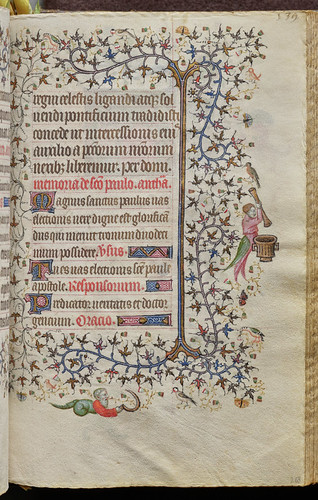 139
regni celestis ligandi atq̃ sol
uendi pontificium tradidisti
concede ut intercessionis eius
auxilio a pctõrum nr̃orum
nexibꝫ liberemur. per dnm̃.
memoria de sc̃o paulo. antha.
Magnus sanctus paulus uas
electionis uere digne est glorifican
dus qui meruit tronum duode
num possidere. Vsus.
Tu es uas electionis sc̃e paule
apostole. Responsorium.
Predicator ueritatis et doctor
gentium. Oracio.